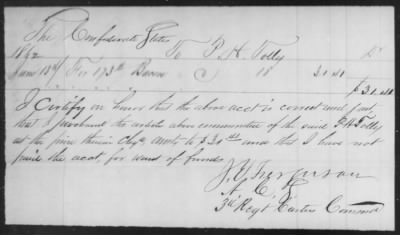 The Confederate States
1862 To P. H. Tolly Dr
June 13th For 193 lb Bacon
$ 30.
I Certify on honor that the above acct is correct and just,
that I purchased the article above enumerated of the said P H Tolly
at the price therein Chgd amtg to $ 30 and that I have not
paid the acct, for want of funds
J. Y. Ferguson
A. C. S
3d Regt